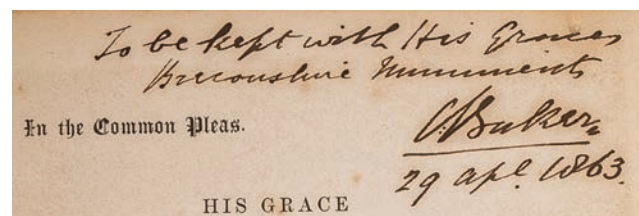 To be kept with His Graces
Breconshire Muniments
In the Common Pleas.
29 apl. 1863.
HIS GRACE